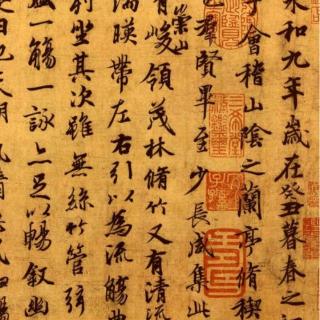 永和九年歲在癸丑暮春之初
于會稽山陰之蘭亭脩禊
也羣賢畢至少長咸集此
有崇山峻領茂林脩竹又有清流
湍暎帶左右引以為流觴曲
列坐其次雖無絲竹管弦
一觴一詠亦足以暢敘幽
是日也天朗氣清